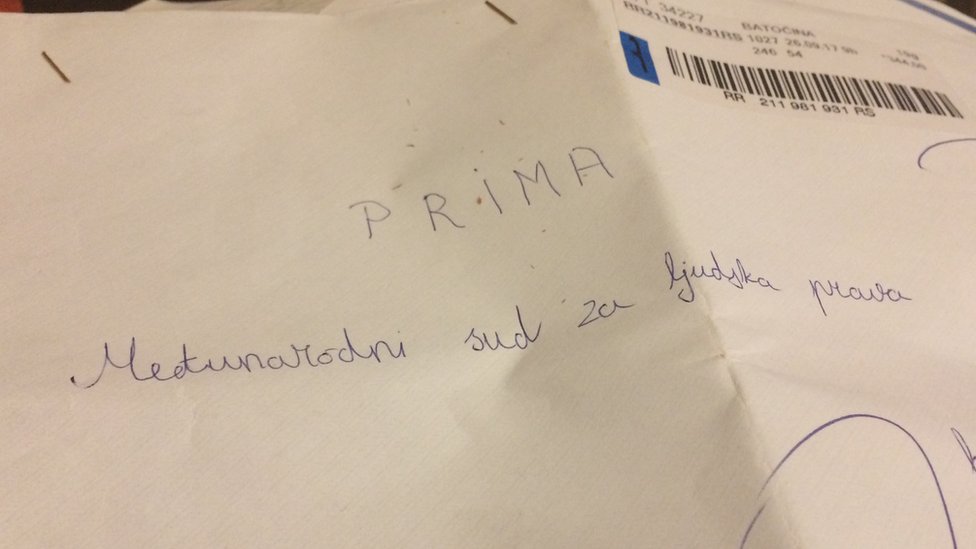 34227
BATOČINA
RR211981931RS 1027 26.09.17 9h
246 54
RR 211 981 931 RS
PRIMA
Međunarodni sud za ljudska prava